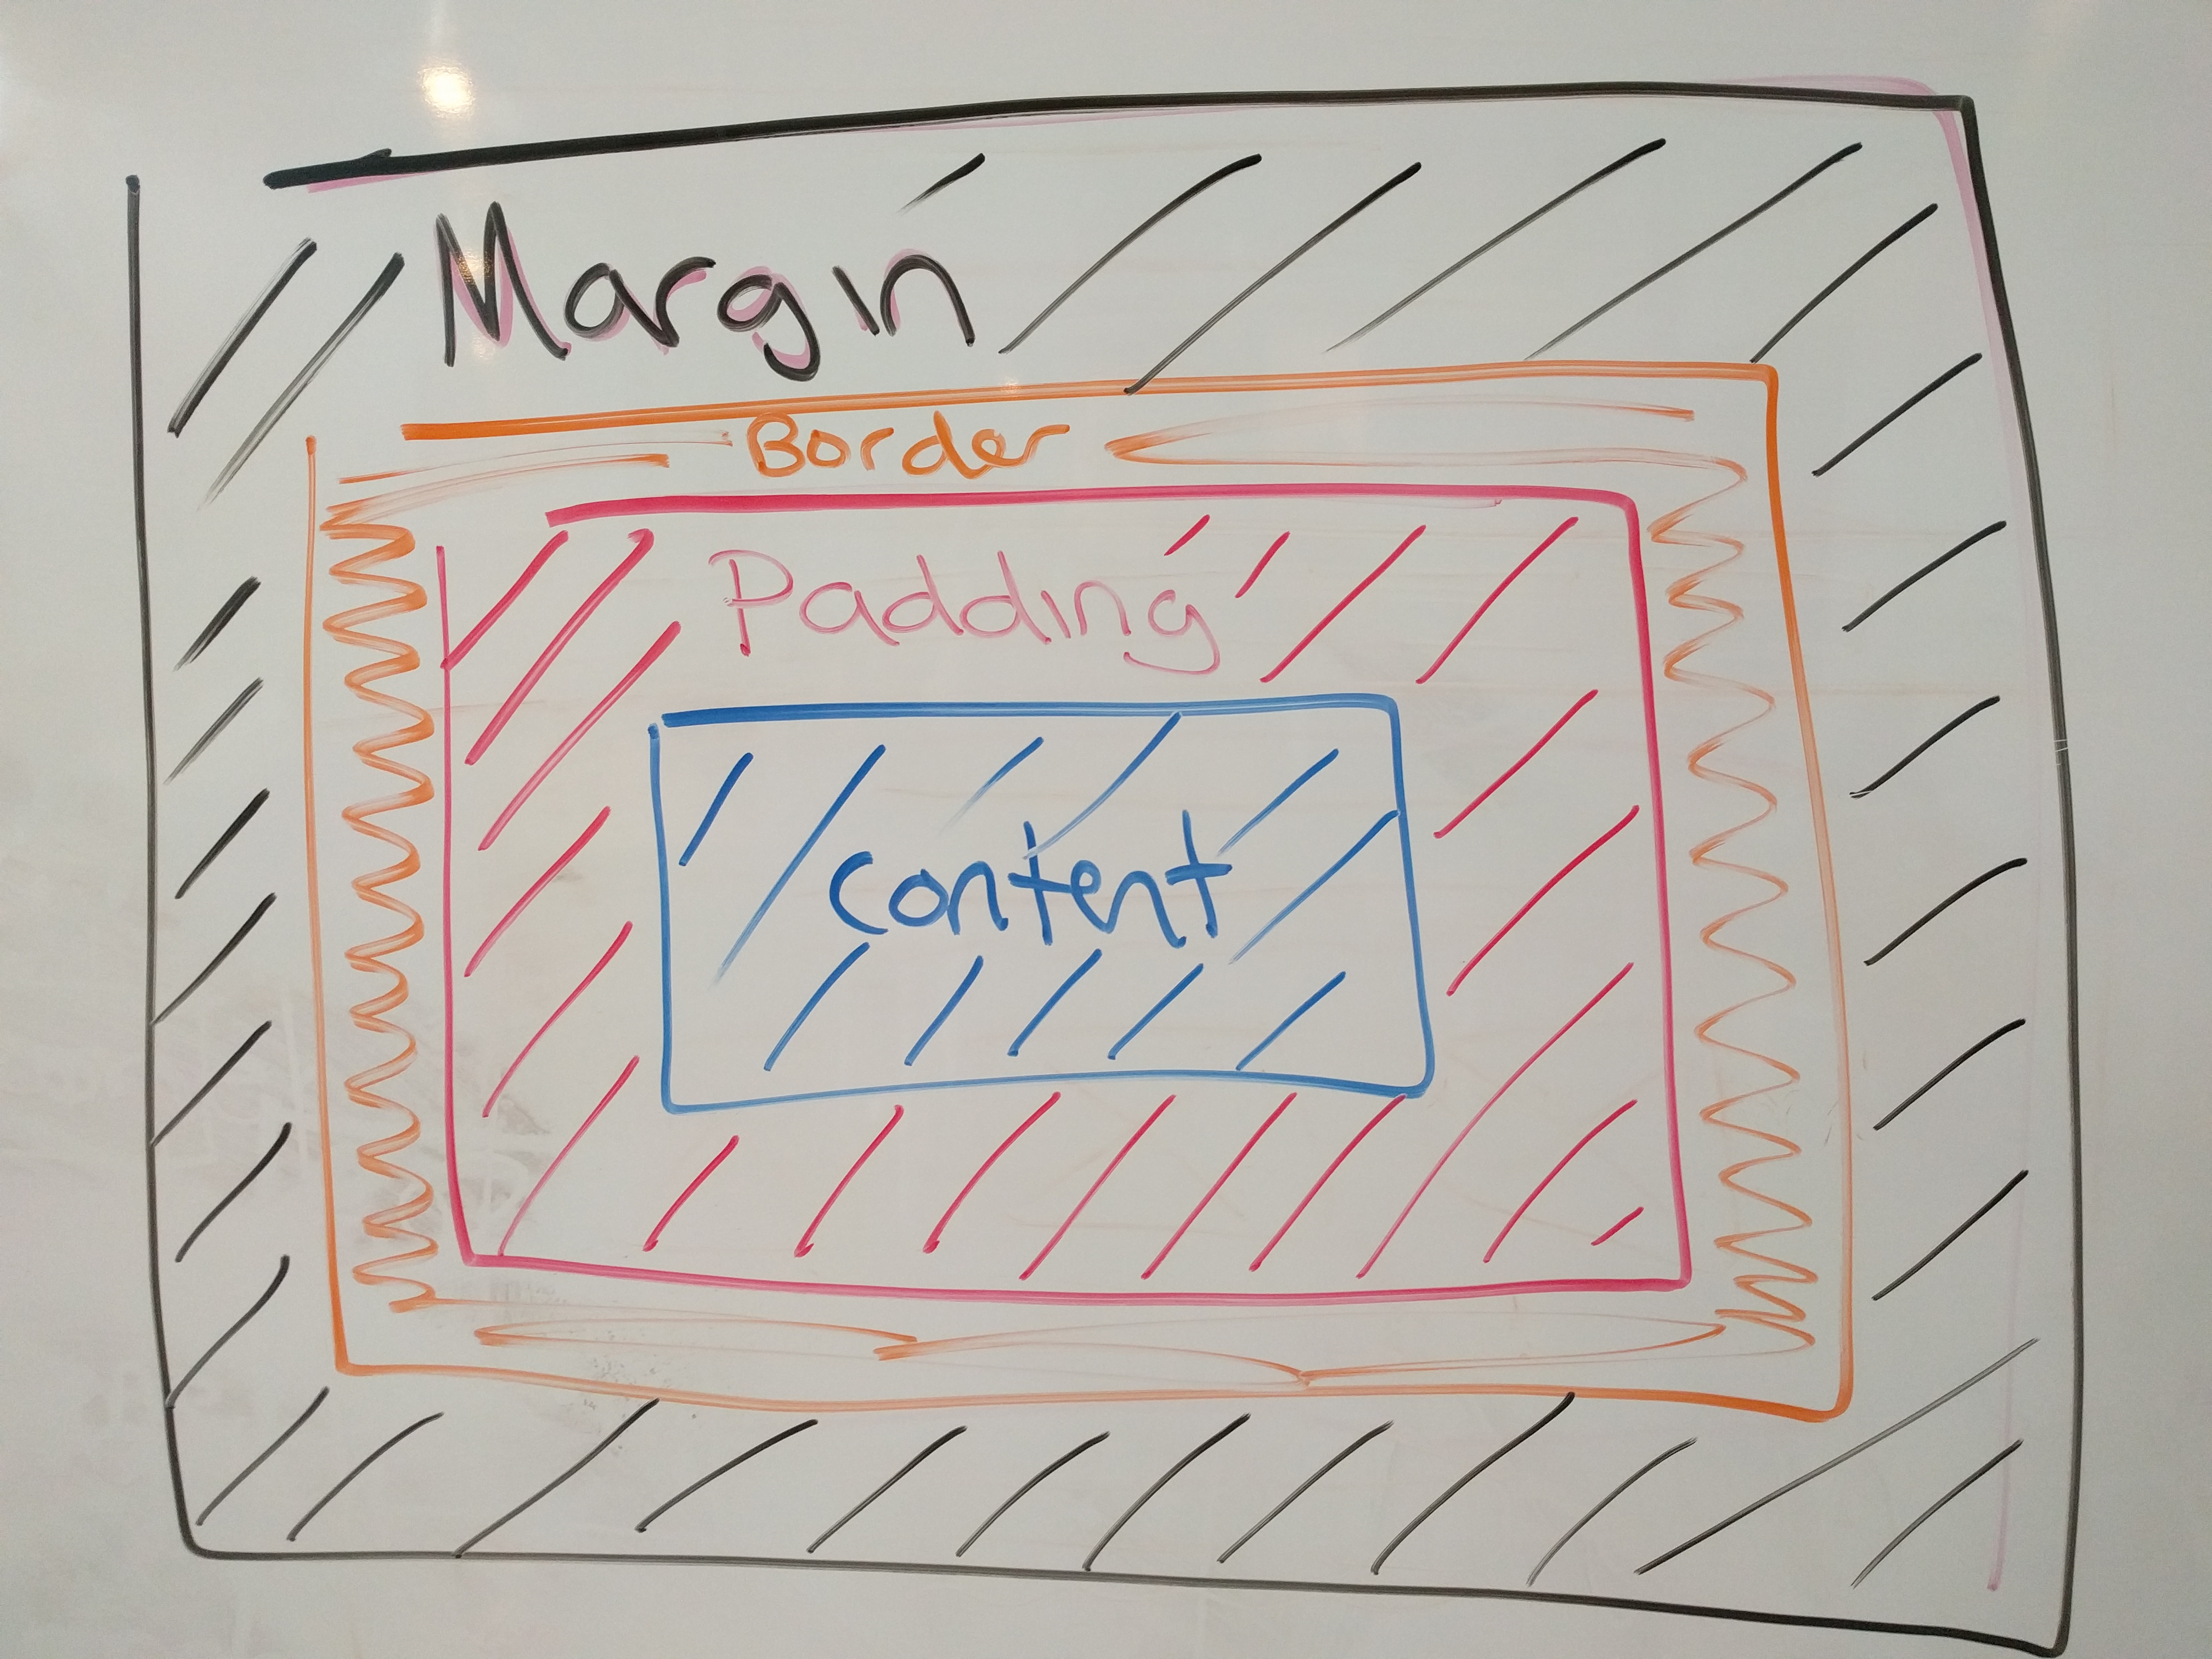 Margin
Border
Padding
content